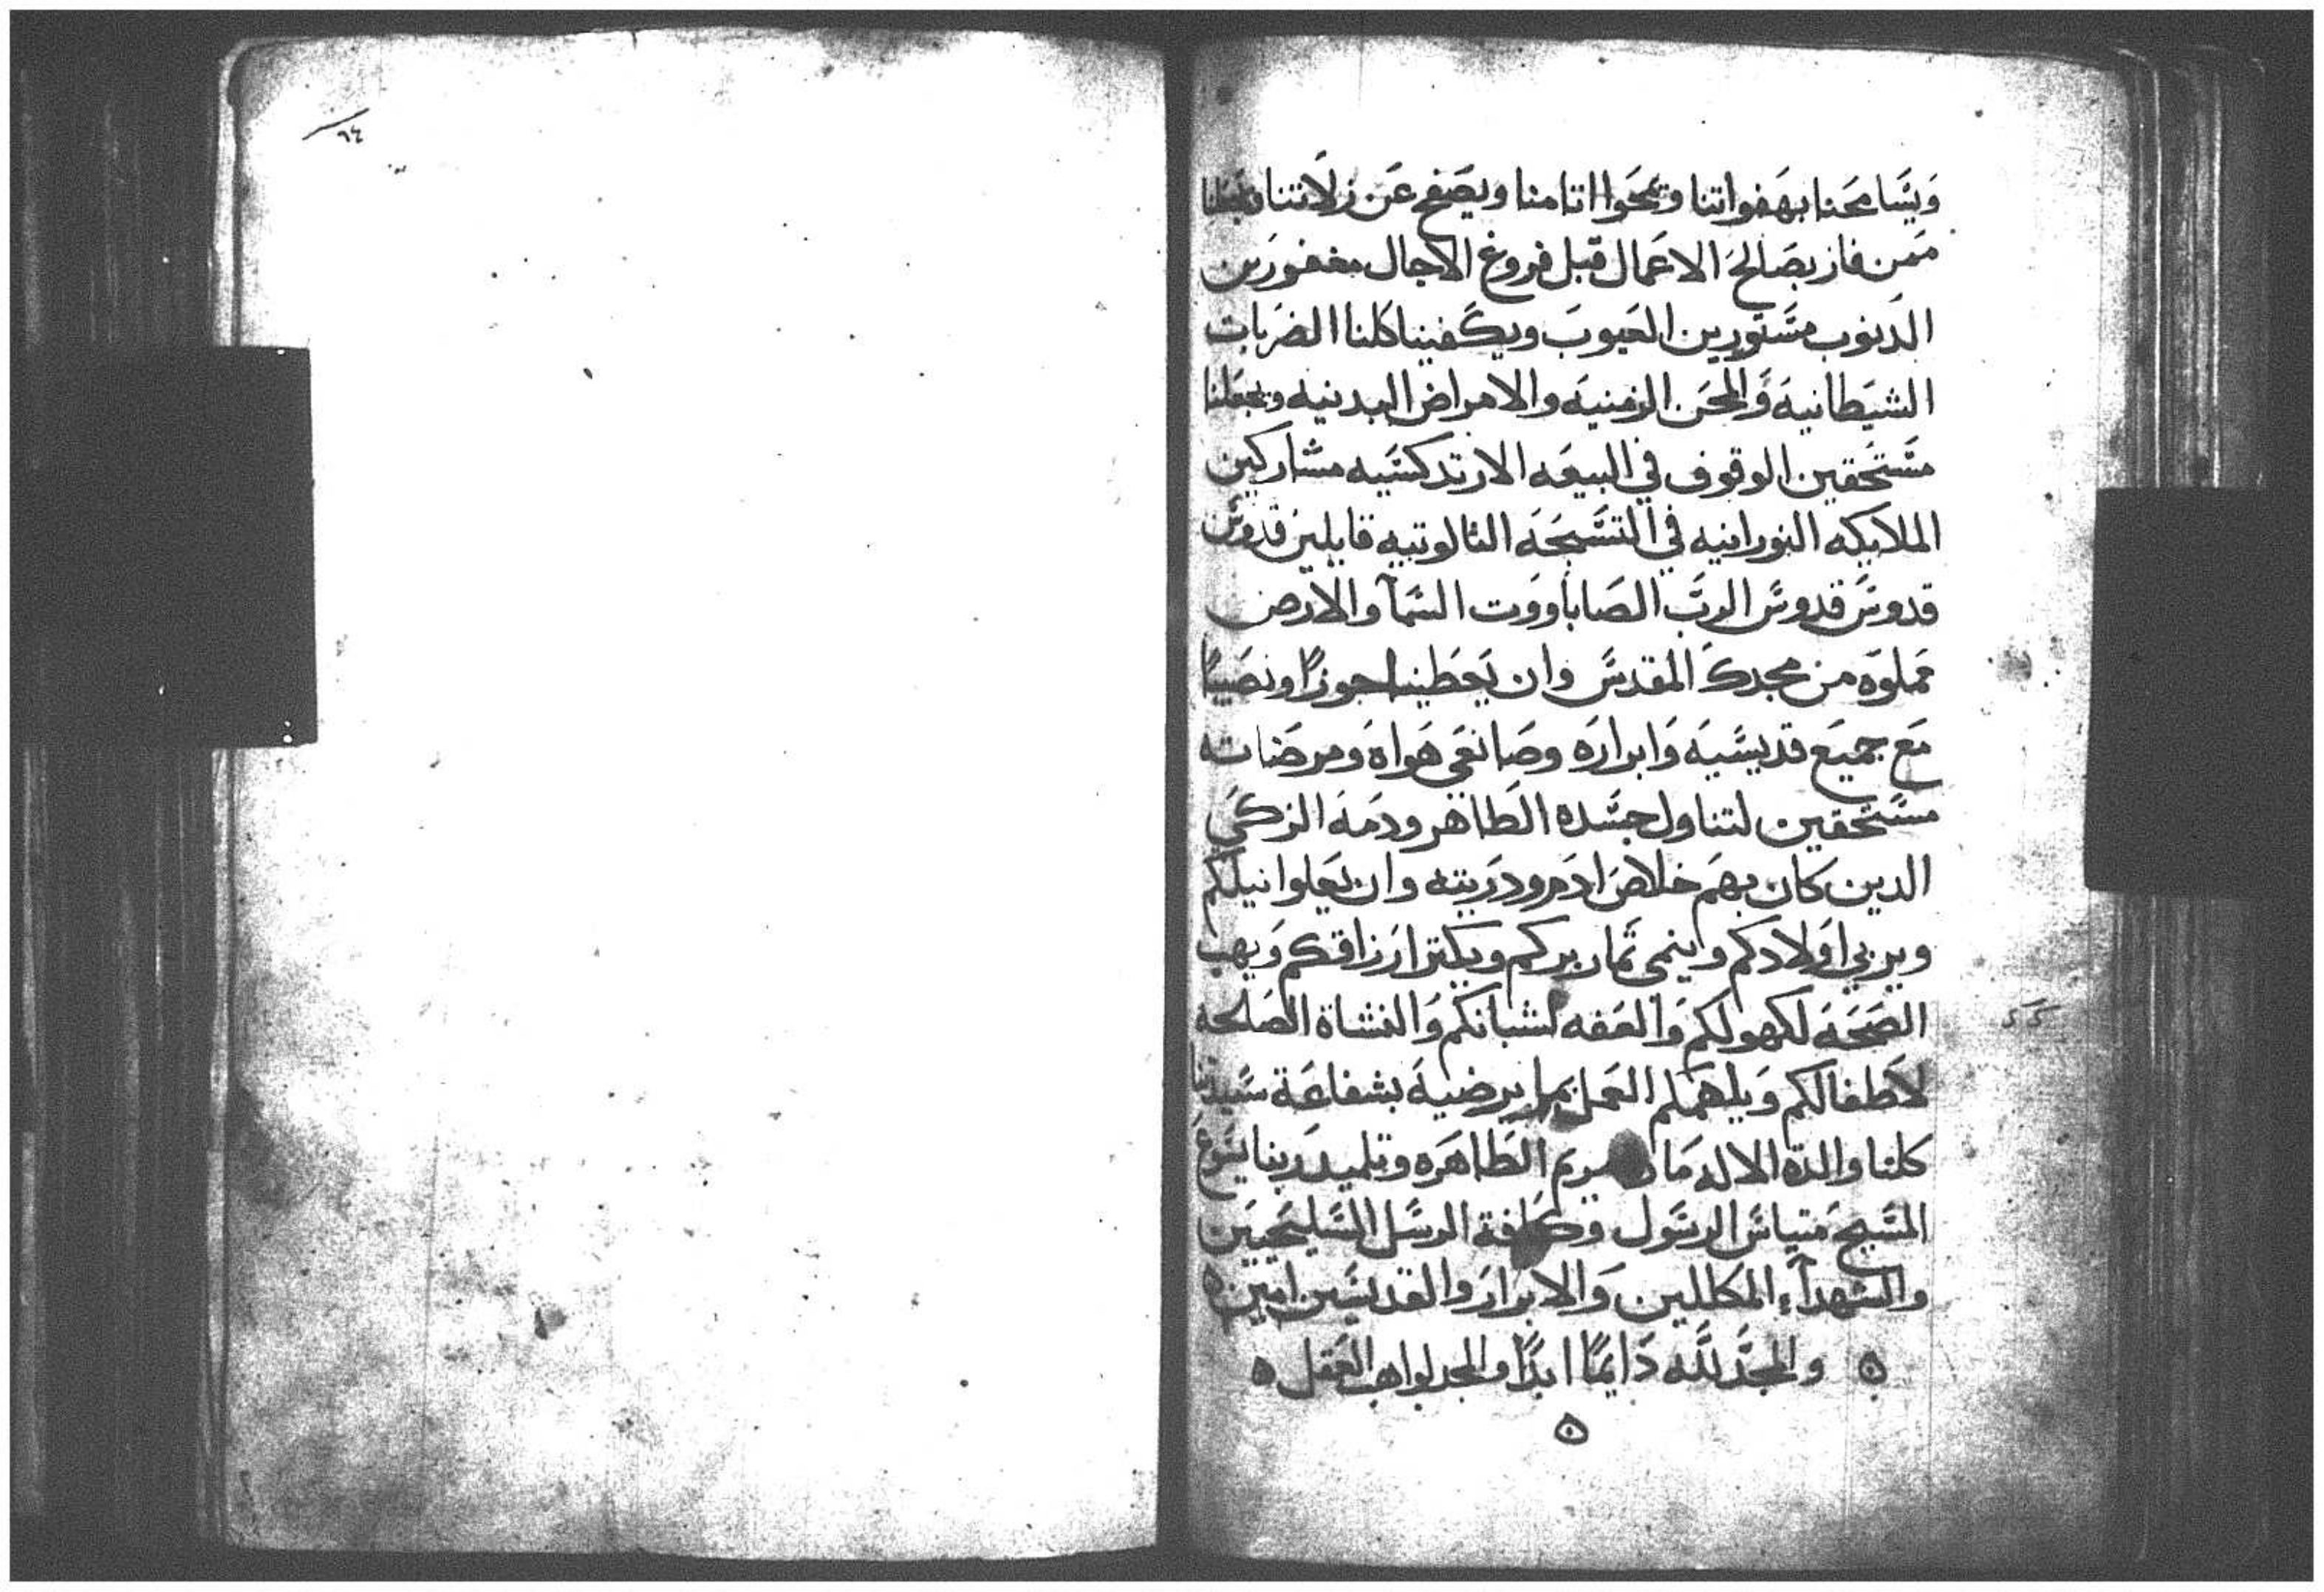 ويسامحنا بهفواتنا ويمحوا اتامنا ويصفح عن زلاتنا ويجعلنا
ممن فاز بصالح الاعمال قبل فروغ الاجال مغفورين
الدنوب مستورين العيوب ويكفينا كلنا الضربات
الشيطانية والمحن الزمنية والامراض البدنيه ويجعلنا
مستحقين الوقوف في البيعه الارتدكسيه مشاركين
الملايكه النورانيه في التسبحه التالوتيه قايلين قدوس
قدوس قدوس الرب الصاباووت السمآ والارض
مملوه من مجدك المقدس وان يحطينا جوزًا ونصيبًا
مع جميع قديسيه وابراره وصانعي هواه ومرضاته
مستحقين لتناول جسده الطاهر ودمه الزكي
الدين كان بهم خلاص ادم ودريته وان يعلوا نيلكم
ويربي اولادكم وينمي تمار بركم ويكتر ارزاقكم ويهب
الصحه لكهولكم والعفه لشبانكم والنشاة الصلحه
لاطفالكم ويلهمكم العمل بما يرضيه بشفاعة سيدتنا
كلنا والدة الاله مريم الطاهره وتلميد ربنا يسوع
المسيح متياس الرسول وكافة الرسل السليحيين
والشهدآء المكللين والابرار والقديسين امين ه
ه والمجد لله دايمًا ابدًا والمجد لواهب العقل ه
ه
٦٤